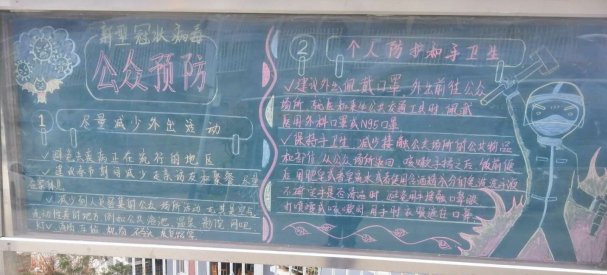 新型冠状病毒
公众预防
1 尽量减少外出活动
✓避免去疾病正在流行的地区
✓建议春节期间减少走亲访友和聚餐
✓减少到人员密集的公共场所活动 尤其是空气
流动性差的地方 例如公共浴池 温泉 影院 网吧
KTV 商场 车站 机场 码头 展览馆等
2 个人防护和手卫生
✓建议外出佩戴口罩 外出前往公众
场所 就医和乘坐公共交通工具时 佩戴
医用外科口罩或N95口罩
✓保持手卫生 减少接触公共场所的公共物品
和部位 从公众场所返回 咳嗽手捂之后 饭前便
后 用肥皂或者
不确定手是否清洁时 避免用手接触口鼻眼
打喷嚏或咳嗽时 用手肘衣服遮住口鼻